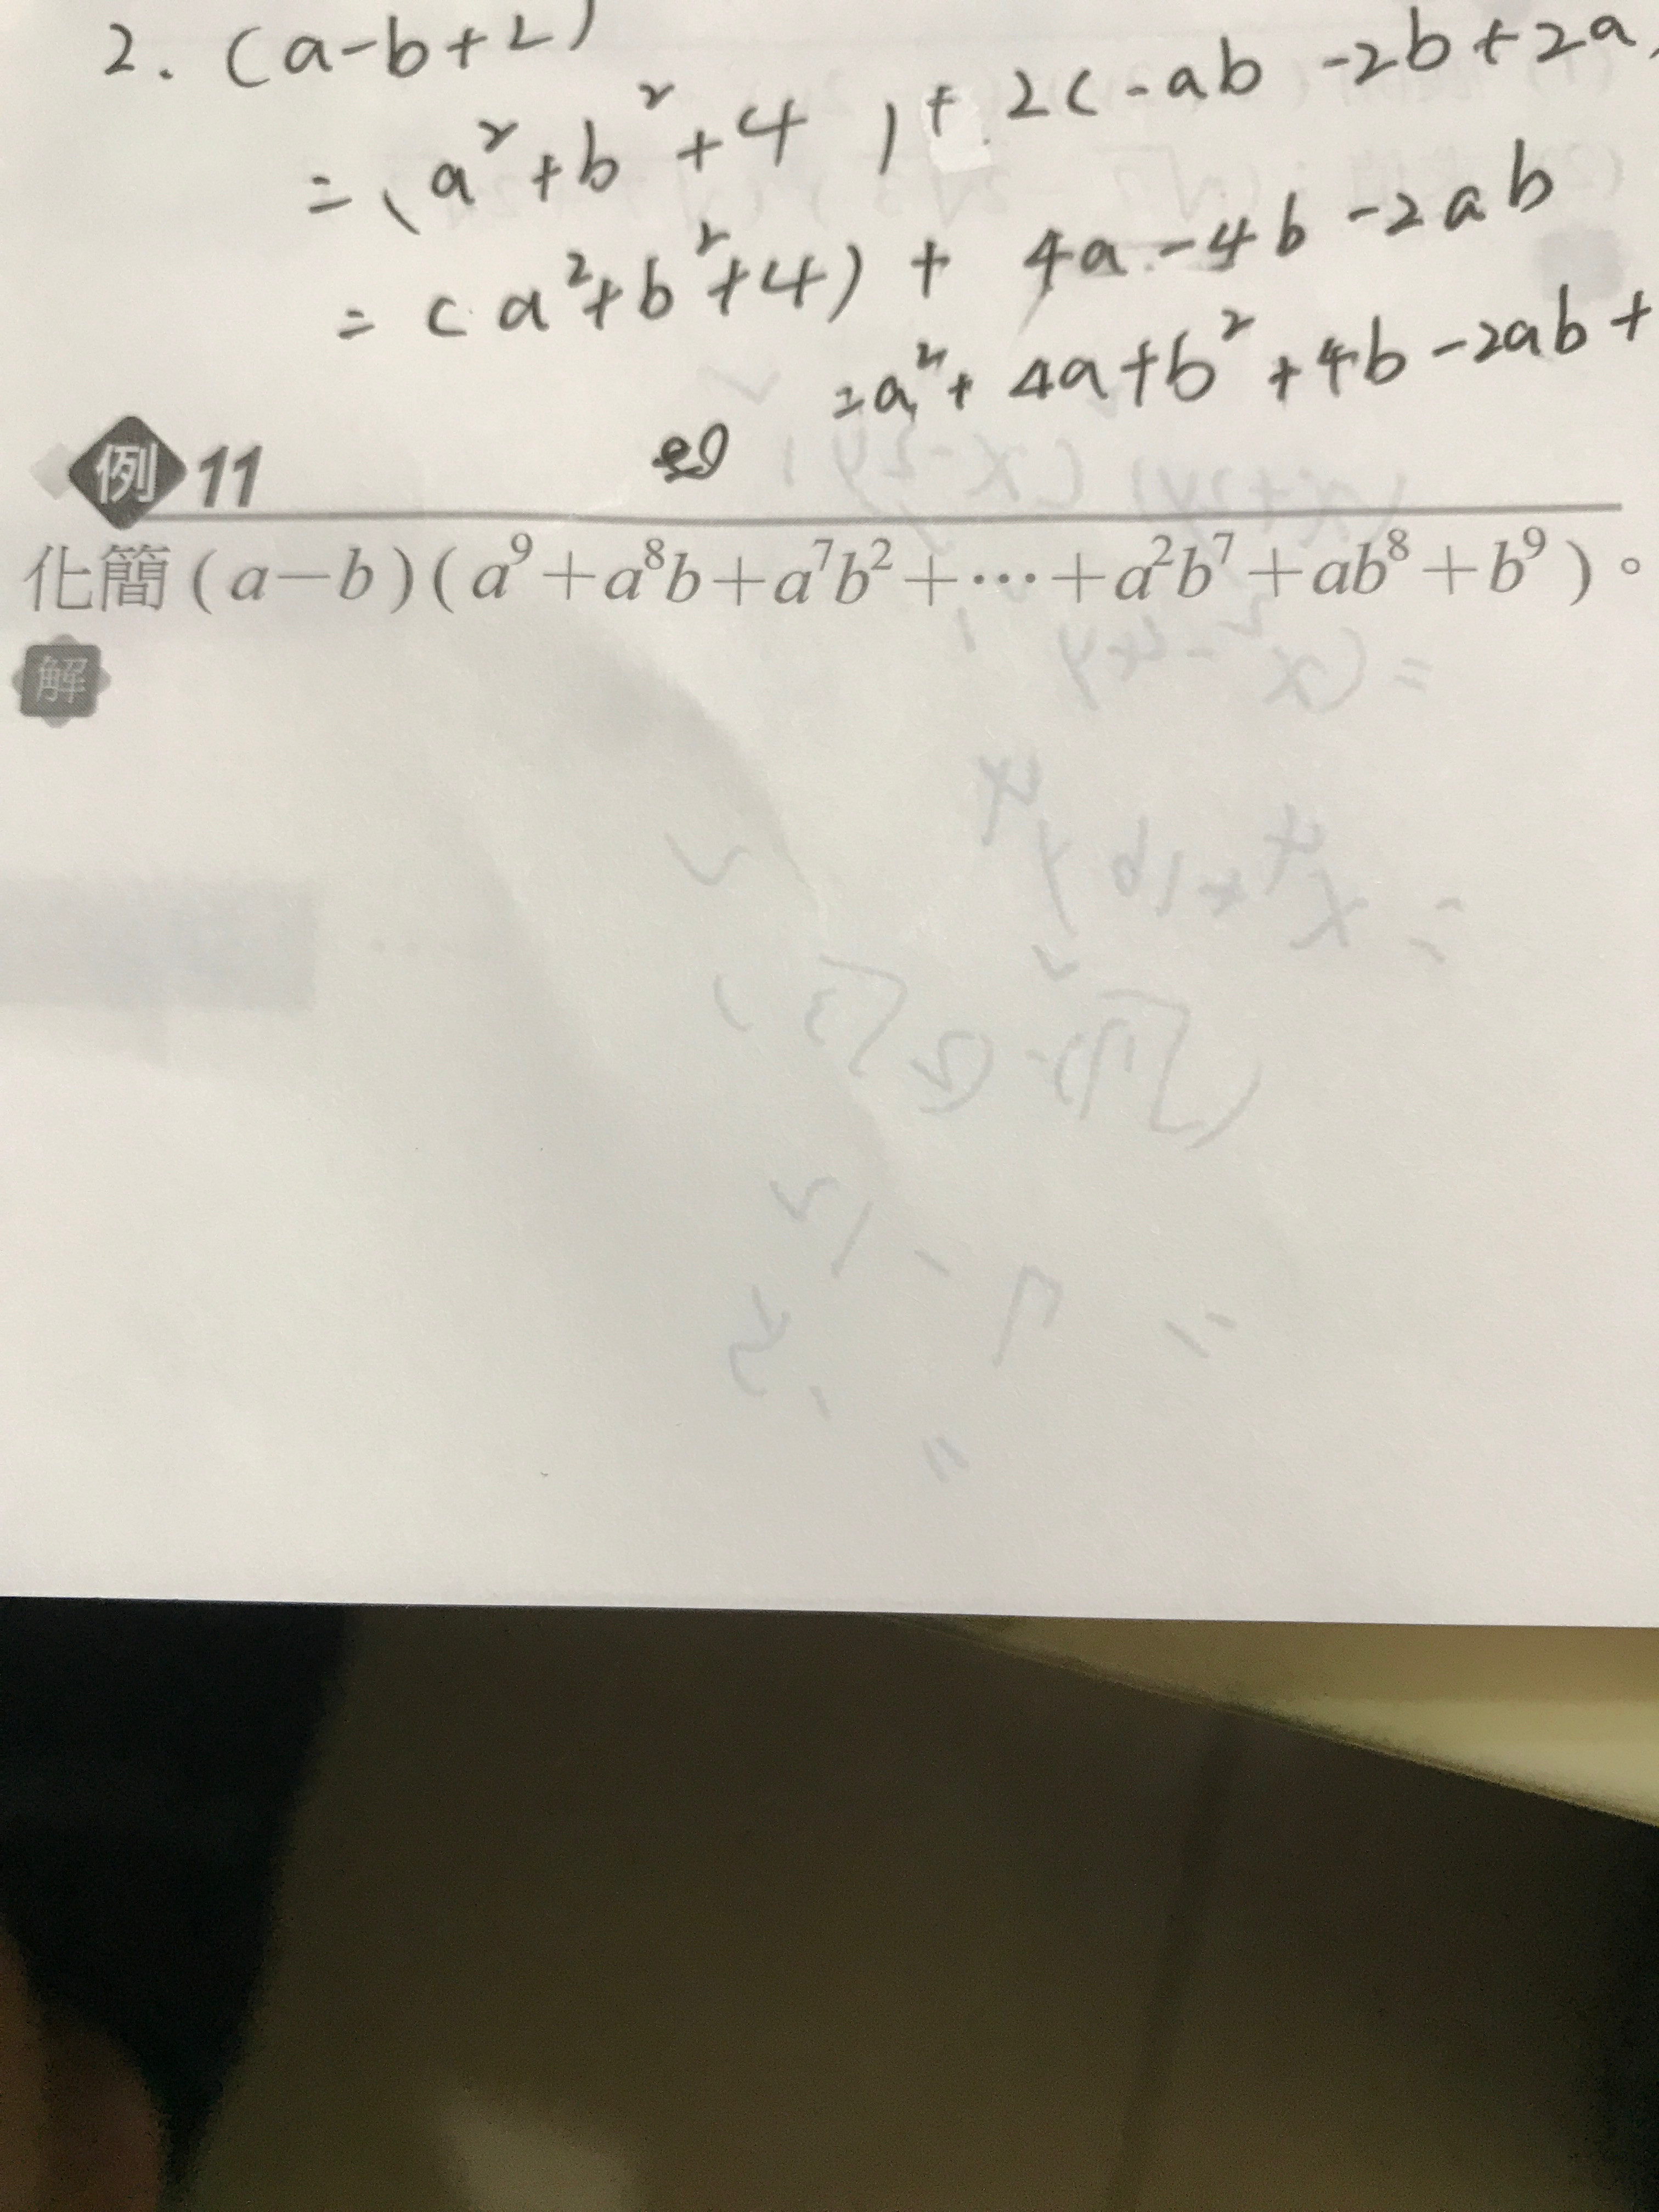 2. (a-b+2)
=(a²+b²+4)+2(-ab-2b+2a
=(a²+b²+4)+4a-4b-2ab
=a²+4a+b²+4b-2ab+
例 11
化簡(a−b)(a⁹+a⁸b+a⁷b²+⋯+a²b⁷+ab⁸+b⁹)。
解